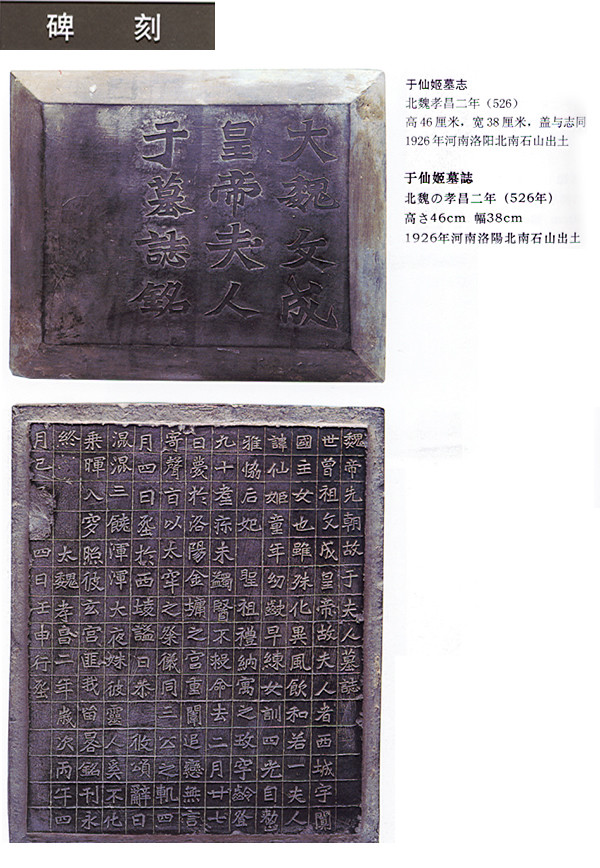 碑 刻
大魏文成
皇帝夫人
于墓誌銘
于仙姬墓志
北魏孝昌二年（526）
高46厘米，宽38厘米，盖与志同
1926年河南洛阳北南石山出土
于仙姬墓誌
北魏の孝昌二年（526年）
高さ46cm 幅38cm
1926年河南洛陽北南石山出土
魏帝先朝故于夫人墓誌
世曾祖文成皇帝故夫人者西城宇闐
國主女也雖殊化異風飲和若一夫人
諱仙姬童年幼齓早練女訓四光自整
雅協后妃 聖祖禮納寓之玫宇齡登
九十耋疹未蠲醫不救命去二月廿七
日薨於洛陽金墉之宮重闈追戀無言
寄聲旨以太牢之祭儀同三公之軌四
月四日塟於西堎謚曰恭 攸頌辭曰
混混三饒渾渾大夜姝彼靈人奚不化
乘暉入穸照彼玄宮匪我留晷銘刊永
終 大魏孝昌二年歲次丙午四
月己 四日壬申行塟